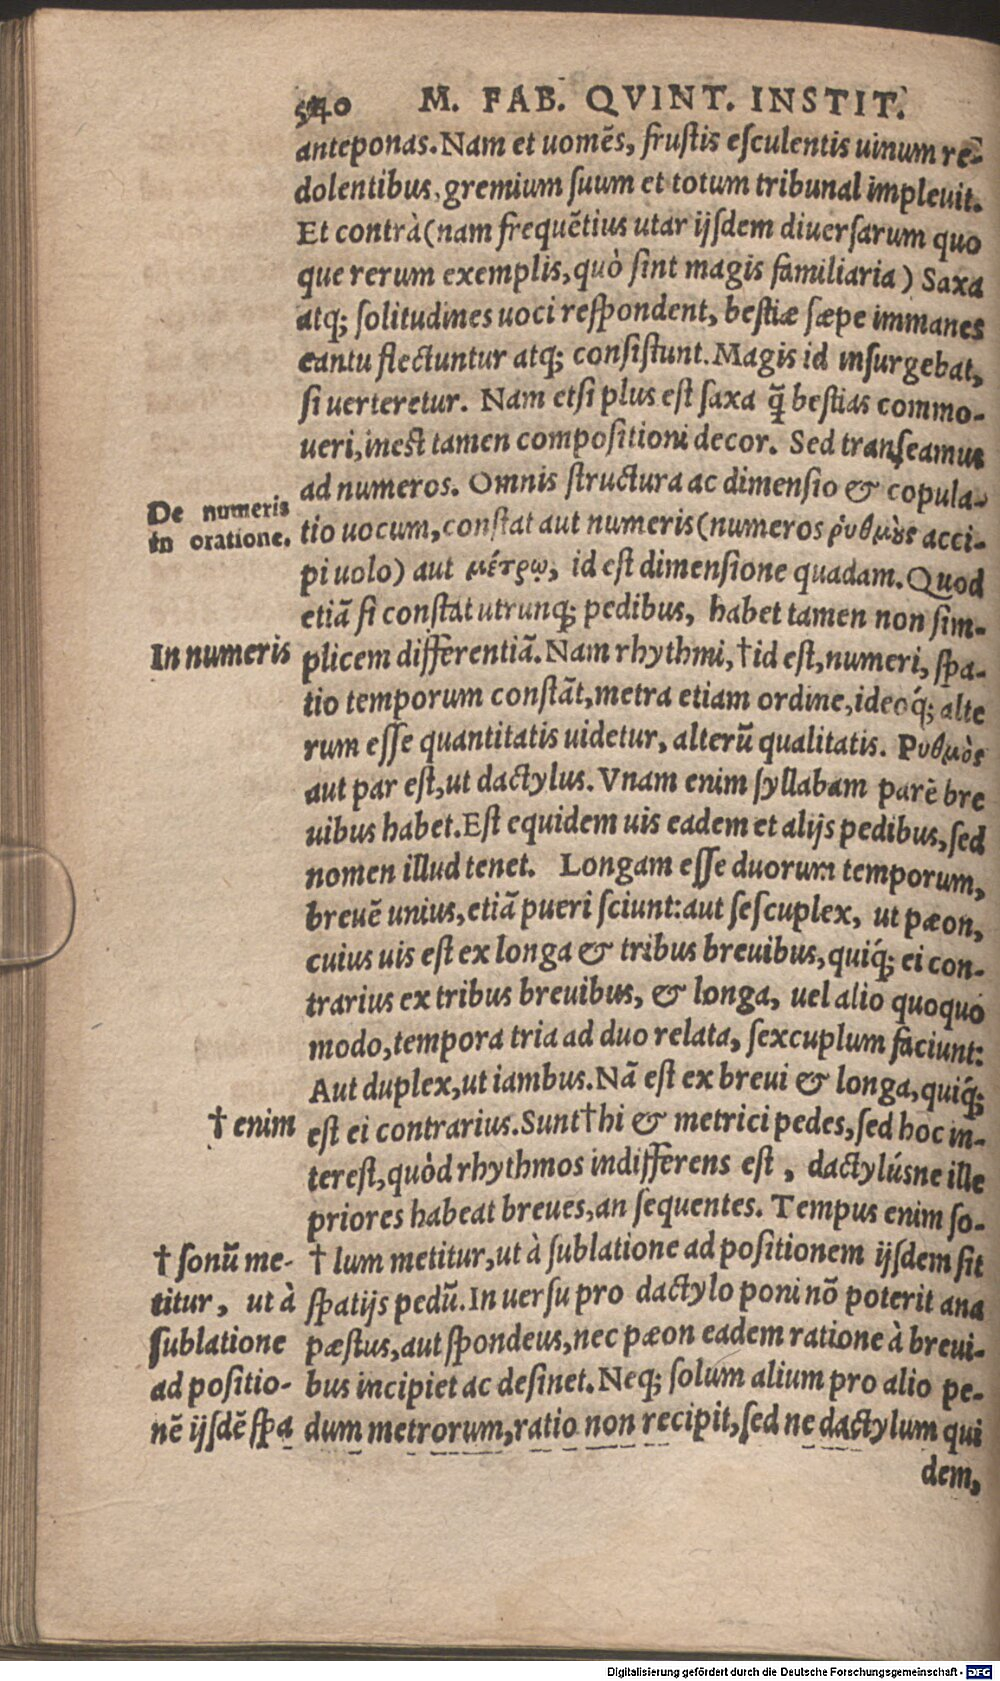 540 M. FAB. QVINT. INSTIT.
anteponas. Nam et uomēs, frustis esculentis uinum re-
dolentibus, gremium suum et totum tribunal impleuit.
Et contrà (nam frequētius utar ijsdem diuersarum quo
que rerum exemplis, quò sint magis familiaria) Saxa
atq; solitudines uoci respondent, bestiæ sæpe immanes
cantu flectuntur atq; consistunt. Magis id insurgebat,
si uerteretur. Nam etsi plus est saxa q̃ bestias commo-
ueri, inest tamen compositioni decor. Sed transeamus
ad numeros. Omnis structura ac dimensio & copula-
De numeris
in oratione.
tio uocum, constat aut numeris (numeros ῥυθμὸυς acci-
pi uolo) aut μέτρῳ, id est dimensione quadam. Quod
etiā si constat utrunq; pedibus, habet tamen non sim-
In numeris
plicem differentiā. Nam rhythmi, † id est, numeri, spa-
tio temporum constāt, metra etiam ordine, ideoq́; alte
rum esse quantitatis uidetur, alterū qualitatis. Ρυθμὸς
aut par est, ut dactylus. Vnam enim syllabam parē bre
uibus habet. Est equidem uis eadem et alijs pedibus, sed
nomen illud tenet. Longam esse duorum temporum,
breuē unius, etiā pueri sciunt: aut sescuplex, ut pæon,
cuius uis est ex longa & tribus breuibus, quiq́; ei con-
trarius ex tribus breuibus, & longa, uel alio quoquo
modo, tempora tria ad duo relata, sexcuplum faciunt:
Aut duplex, ut iambus. Nā est ex breui & longa, quiq́;
† enim
est ei contrarius. Sunt † hi & metrici pedes, sed hoc in-
terest, quòd rhythmos indifferens est, dactylúsne ille
priores habeat breues, an sequentes. Tempus enim so-
† sonū me-
titur, ut à
sublatione
ad positio-
nē ijsdē spa
† lum metitur, ut à sublatione ad positionem ijsdem sit
spatijs pedū. In uersu pro dactylo poni nō poterit ana
pæstus, aut spondeus, nec pæon eadem ratione à breui-
bus incipiet ac desinet. Neq; solum alium pro alio pe-
dum metrorum, ratio non recipit, sed ne dactylum qui
dem,
Digitalisierung gefördert durch die Deutsche Forschungsgemeinschaft - DFG